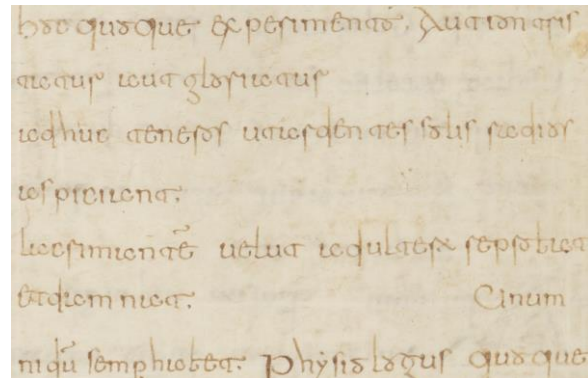 hoc quoque experimento.
natus gloriatur
adhuc teneros ut ardentes solis radios
aspiciant.
lacrimantē uelut adulterā reprobat
et damnat. Unum
nidū semp habet. Physiologus quoque